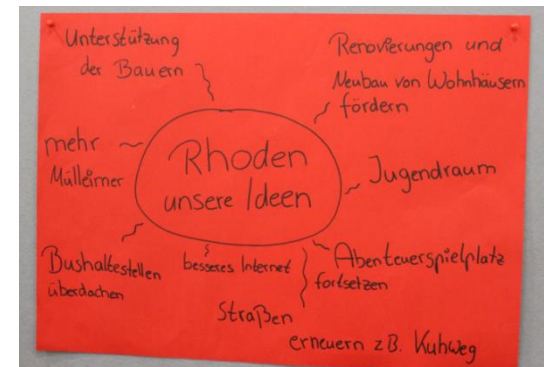 Unterstützung
der Bauern
Renovierungen und
Neubau von Wohnhäusern
fördern
mehr
Mülleimer
Rhoden
unsere Ideen
Jugendraum
Bushaltestellen
überdachen
besseres Internet
Abenteuerspielplatz
fortsetzen
Straßen
erneuern z.B. Kuhweg